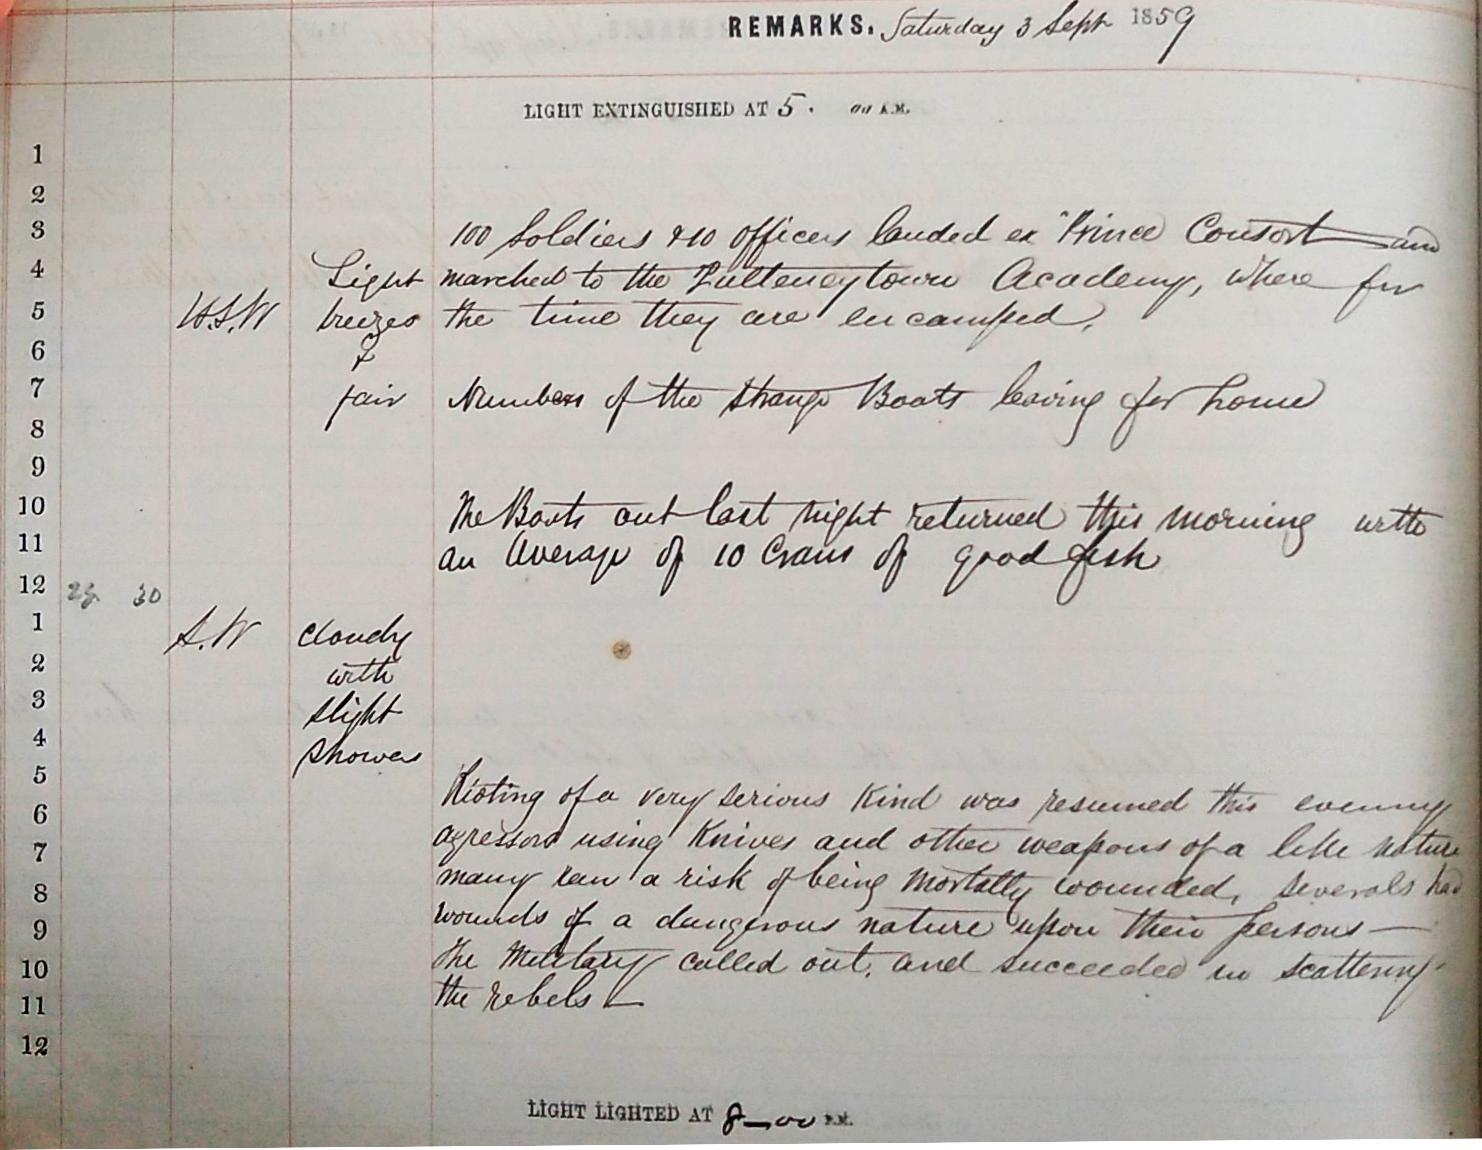 REMARKS. Saturday 3 Sept 1859
LIGHT EXTINGUISHED AT 5 . 00 A.M.
1
2
3 100 Soldiers & 10 officers landed ex "Prince Consort and
4 Light marched to the Pulteneytown Academy, where for
5 W.S.W breezes the time they are encamped.
6 &
7 fair Numbers of the Strange Boats leaving for home
8
9
10 The Boats out last night returned this morning with
11 an Average of 10 Crans of good fish
12 29 30
1 S.W Cloudy
2 with
3 Slight
4 Showers
5 Rioting of a very serious Kind was resumed this evening
6 agressors using Knives and other weapons of a like nature
7 many ran a risk of being Mortally wounded, Severals had
8 wounds of a dangerous nature upon their persons —
9 The Military called out, and succeeded in scattering
10 the rebels —
11
12
LIGHT LIGHTED AT 8–00 P.M.